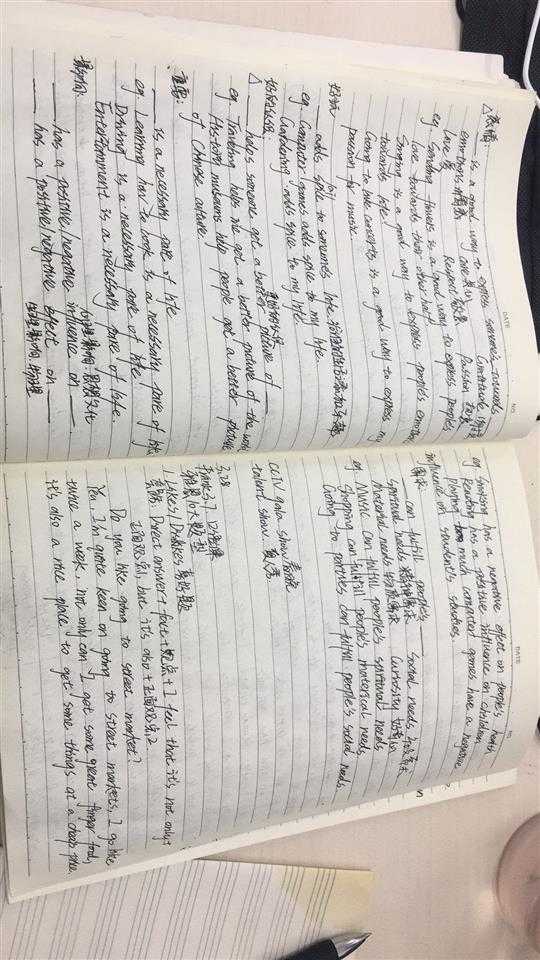 DATE NO.
△ 表情:
___ is a good way to express someone's towards ___
emotions 情感 Care 关心 Gratitude 感激
love 爱 Respect 尊敬 Passion 热情
eg. Sending flowers is a good way to express people's
love towards their other half.
Singing is a good way to express people's emotion
towards life.
Going to live concerts is a good way to express my
passion for music.
___ adds spice to someone's life
eg. Computer games adds spice to my life.
Gardening adds spice to my life.
△ ___ helps someone get a better picture of ___
eg. Traveling helps me get a better picture of the world
History museums help people get a better picture
of Chinese culture.
___ is a necessary part of life
eg. Learning how to cook is a necessary part of life
Driving is a necessary part of life.
Entertainment is a necessary part of life.
影响:
___ has a positive/negative influence on ___
___ has a positive/negative effect on ___
DATE NO
eg Smoking has a negative effect on people's health
Reading has a positive influence on children
Playing too much computer games have a negative
influence on student's studies.
需求:
___ can fulfill people's ___
Spiritual needs Social needs 社交需求
Material needs Curiosity 好奇心
eg Music can fulfill people's spiritual needs
Shopping can fulfill people's material needs
Going to parties can fulfill people's social needs
CCTV gala show 春晚
talent show 真人秀
3.28
Part 1
1 Likes/Dislikes 喜好题
思路: Direct answer + fact + 观点 + I feel that it's not only +
正面观点1, but it's also + 正面观点2
Do you like going to street market?
Yes, I'm quite keen on going to street markets, I go like
twice a week, not only can I get some great finger food,
it's also a nice place to get some things at a cheap price.